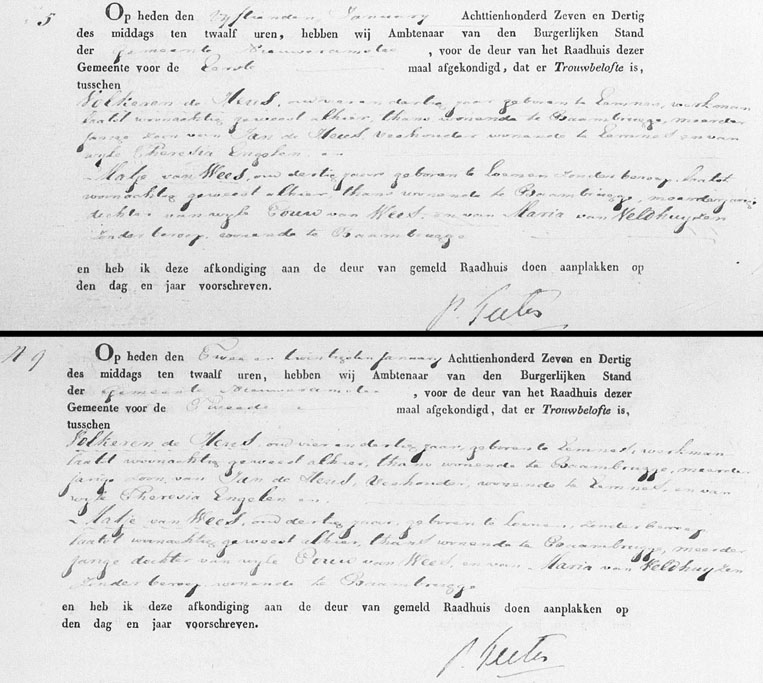 5
Op heden den vyftienden January Achttienhonderd Zeven en Dertig
des middags ten twaalf uren, hebben wij Ambtenaar van den Burgerlijken Stand
der gemeente Nieuweramstel , voor de deur van het Raadhuis dezer
Gemeente voor de Eerste maal afgekondigd, dat er Trouwbelofte is,
tusschen
Volkeren de Heus, oud vier en dertig jaar geboren te Eemnes, werkman
laatst woonachtig geweest alhier, thans wonende te Baambrugge, meerder
jarige zoon van Jan de Heus, veehouder wonende te Eemnes en van
wyle Theresia Engelen, en
Matje van Wees, oud dertig jaar geboren te Loenen zonder beroep, laatst
woonachtig geweest alhier, thans wonende te Baambrugge, meerderjarige
dochter van wyle Gouw van Wees, en van Maria van Veldhuyzen
zonder beroep, wonende te Baambrugge
en heb ik deze afkondiging aan de deur van gemeld Raadhuis doen aanplakken op
den dag en jaar voorschreven.
9
Op heden den Twee en twintigsten January Achttienhonderd Zeven en Dertig
des middags ten twaalf uren, hebben wij Ambtenaar van den Burgerlijken Stand
der gemeente Nieuweramstel , voor de deur van het Raadhuis dezer
Gemeente voor de Tweede maal afgekondigd, dat er Trouwbelofte is,
tusschen
Volkeren de Heus, oud vier en dertig jaar, geboren te Eemnes, werkman
laatst woonachtig geweest alhier, thans wonende te Baambrugge, meerder
jarige zoon, van Jan de Heus, veehouder, wonende te Eemnes, en van
wyle Theresia Engelen en
Matje van Wees, oud dertig jaar, geboren te Loenen, zonder beroep
laatst woonachtig geweest alhier, thans wonende te Baambrugge, meerder
jarige dochter van wyle Gouw van Wees, en van Maria van Veldhuyzen
zonder beroep wonende te Baambrugge
en heb ik deze afkondiging aan de deur van gemeld Raadhuis doen aanplakken op
den dag en jaar voorschreven.